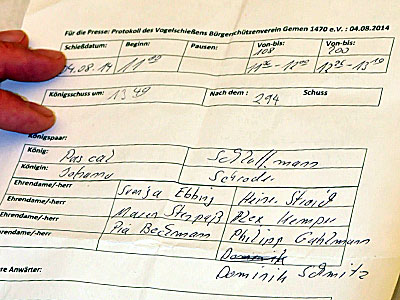 Für die Presse: Protokoll des Vogelschießens Bürgerschützenverein Gemen 1470 e.V. : 04.08.2014
Schießdatum: Beginn: Pausen: Von-bis: Von-bis:
108 200
04.08.14 11 00
Königsschuss um: 13 49 Nach dem : 294 Schuss
Königspaar:
König: Pascal Schlottmann
Königin: Johanna Schröder
Ehrendame/-herr Svenja Ebbing Heine
Ehrendame/-herr Maren Alex Kemper
Ehrendame/-herr Pia Beckmann Philipp Gahlmann
Ehrendame/-herr Dominik
Dominik Schmitz
re Anwärter: